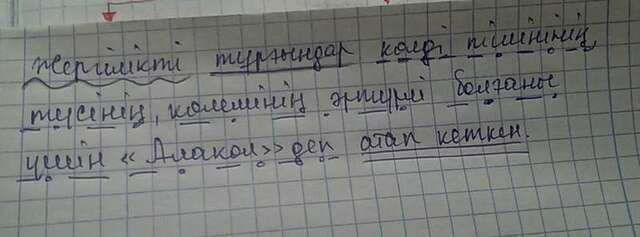 жергілікті тұрғындар көлді пішінінің,
түсінің, көлемінің әртүрлі болғаны
үшін «Алакөл» деп атап кеткен.